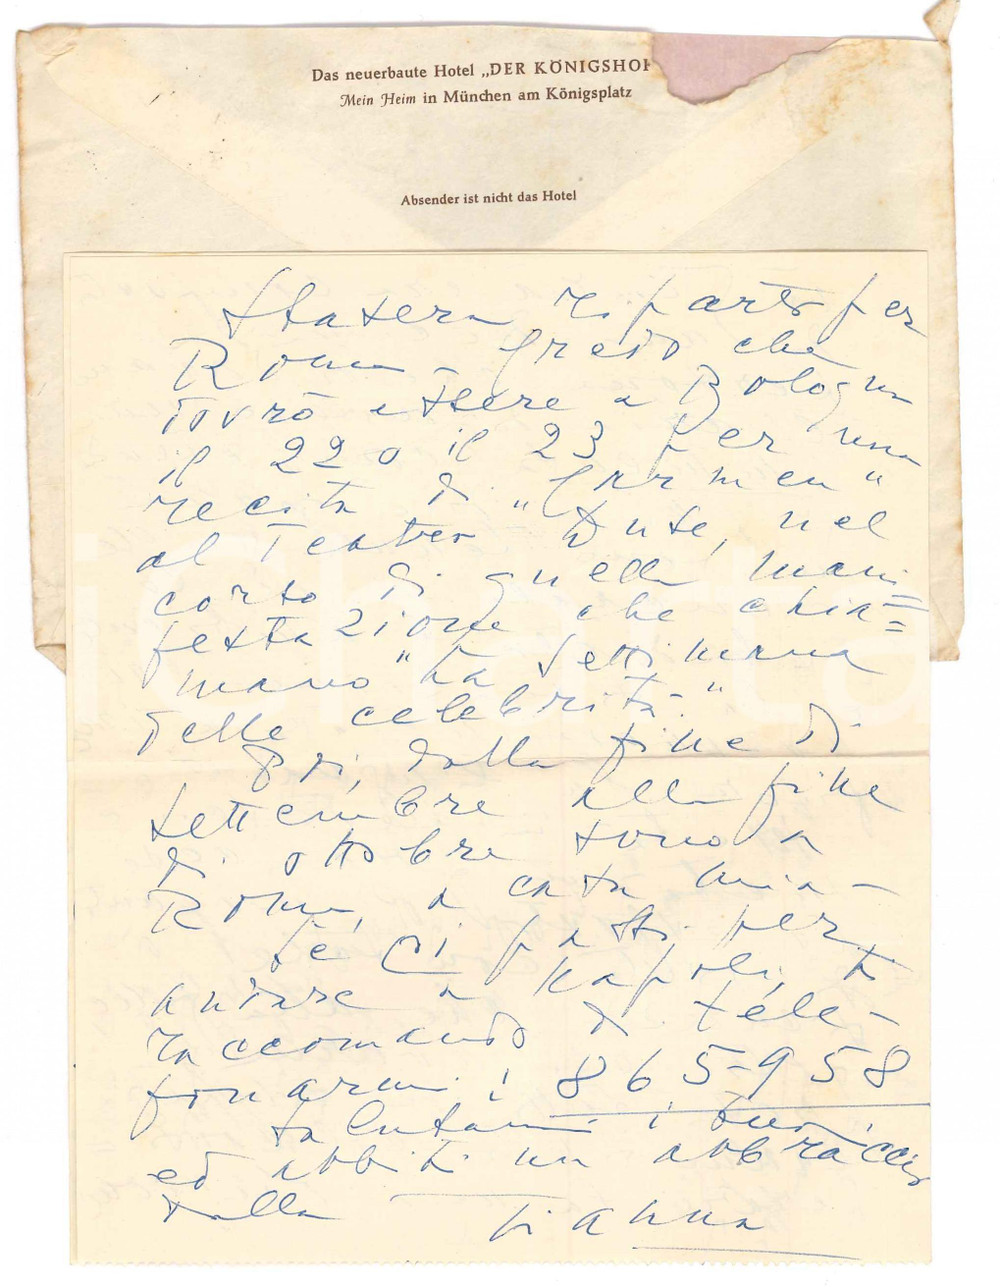 Das neuerbaute Hotel „DER KÖNIGSHOF
Mein Heim in München am Königsplatz
Absender ist nicht das Hotel
Stasera riparto per
Roma. Credo che
dovrò essere a Bologna
il 22 o il 23 per una
recita di "Carmen"
al Teatro Duse, nel
corso di quella mani=
festazione che chia=
mano "La Settimana
delle celebrità."
Poi, dalla fine di
settembre alla fine
di ottobre sono a
Roma, a casa mia -
Se ci passi per
andare a Napoli, ti
raccomando di tele-
fonarmi: 865-958
Salutami i tuoi
ed abbiti un abbraccio
dalla
Gianna
iCharta